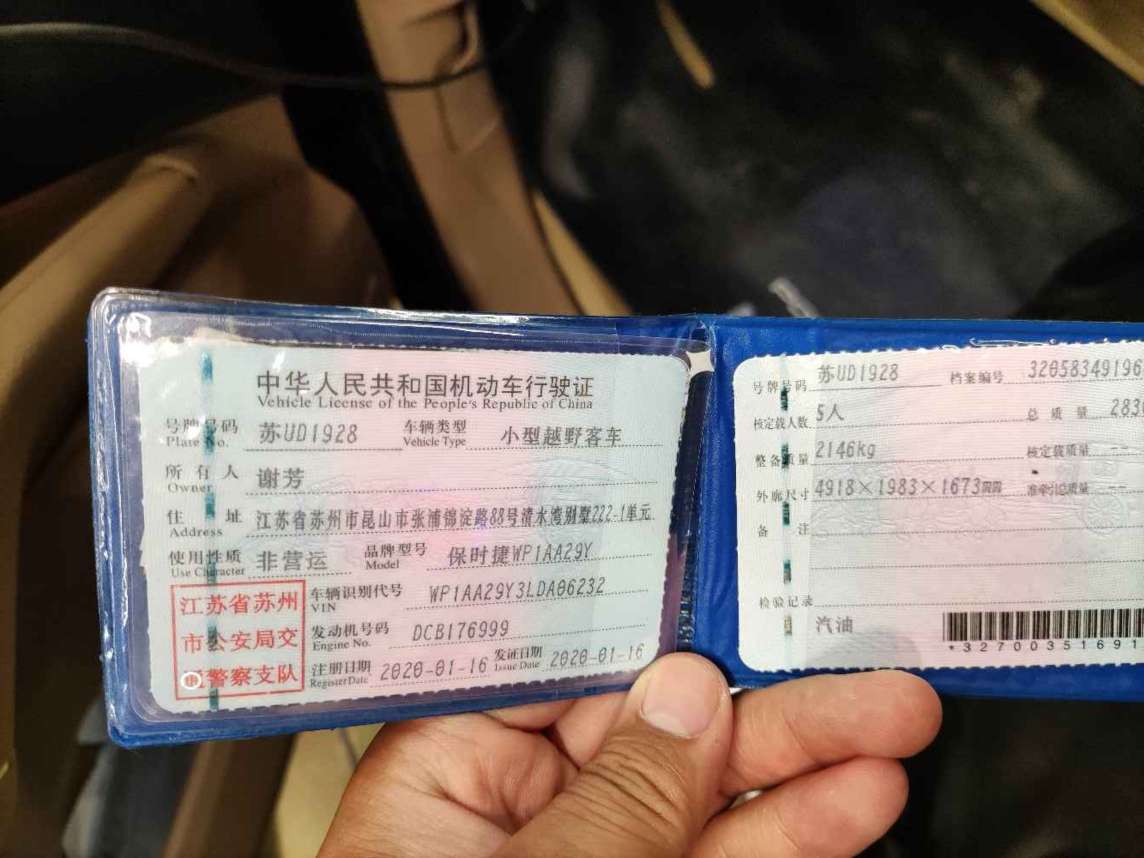 中华人民共和国机动车行驶证
Vehicle License of the People's Republic of China
号牌号码 苏UD1928 车辆类型 小型越野客车
Plate No. Vehicle Type
所有人 谢芳
Owner
住址 江苏省苏州市昆山市张浦锦淀路88号清水湾别墅222-1单元
Address
使用性质 非营运 品牌型号 保时捷WP1AA29Y
Use Character Model
江苏省苏州
市公安局交
警察支队
车辆识别代号 WP1AA29Y3LDA06232
VIN
发动机号码 DCB176999
Engine No.
注册日期 2020-01-16 发证日期 2020-01-16
Register Date Issue Date
号牌号码 苏UD1928 档案编号 32058349196
核定载人数 5人 总质量 283
整备质量 2146kg 核定载质量 --
外廓尺寸 4918×1983×1673 准牵引总质量 --
备注
检验记录
汽油
*32700351691